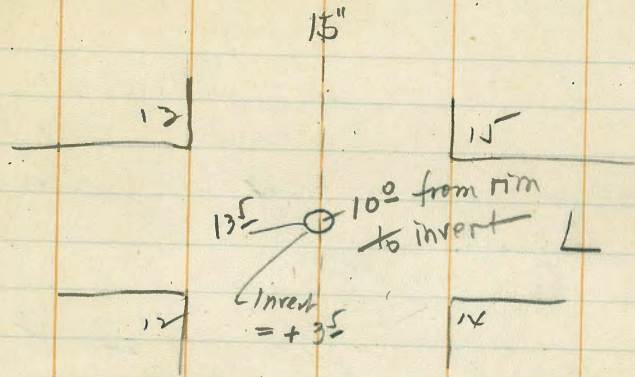 15"
13
15
13⁵
10⁰ from rim
to invert
L
Invert
= + 3⁵
12
14